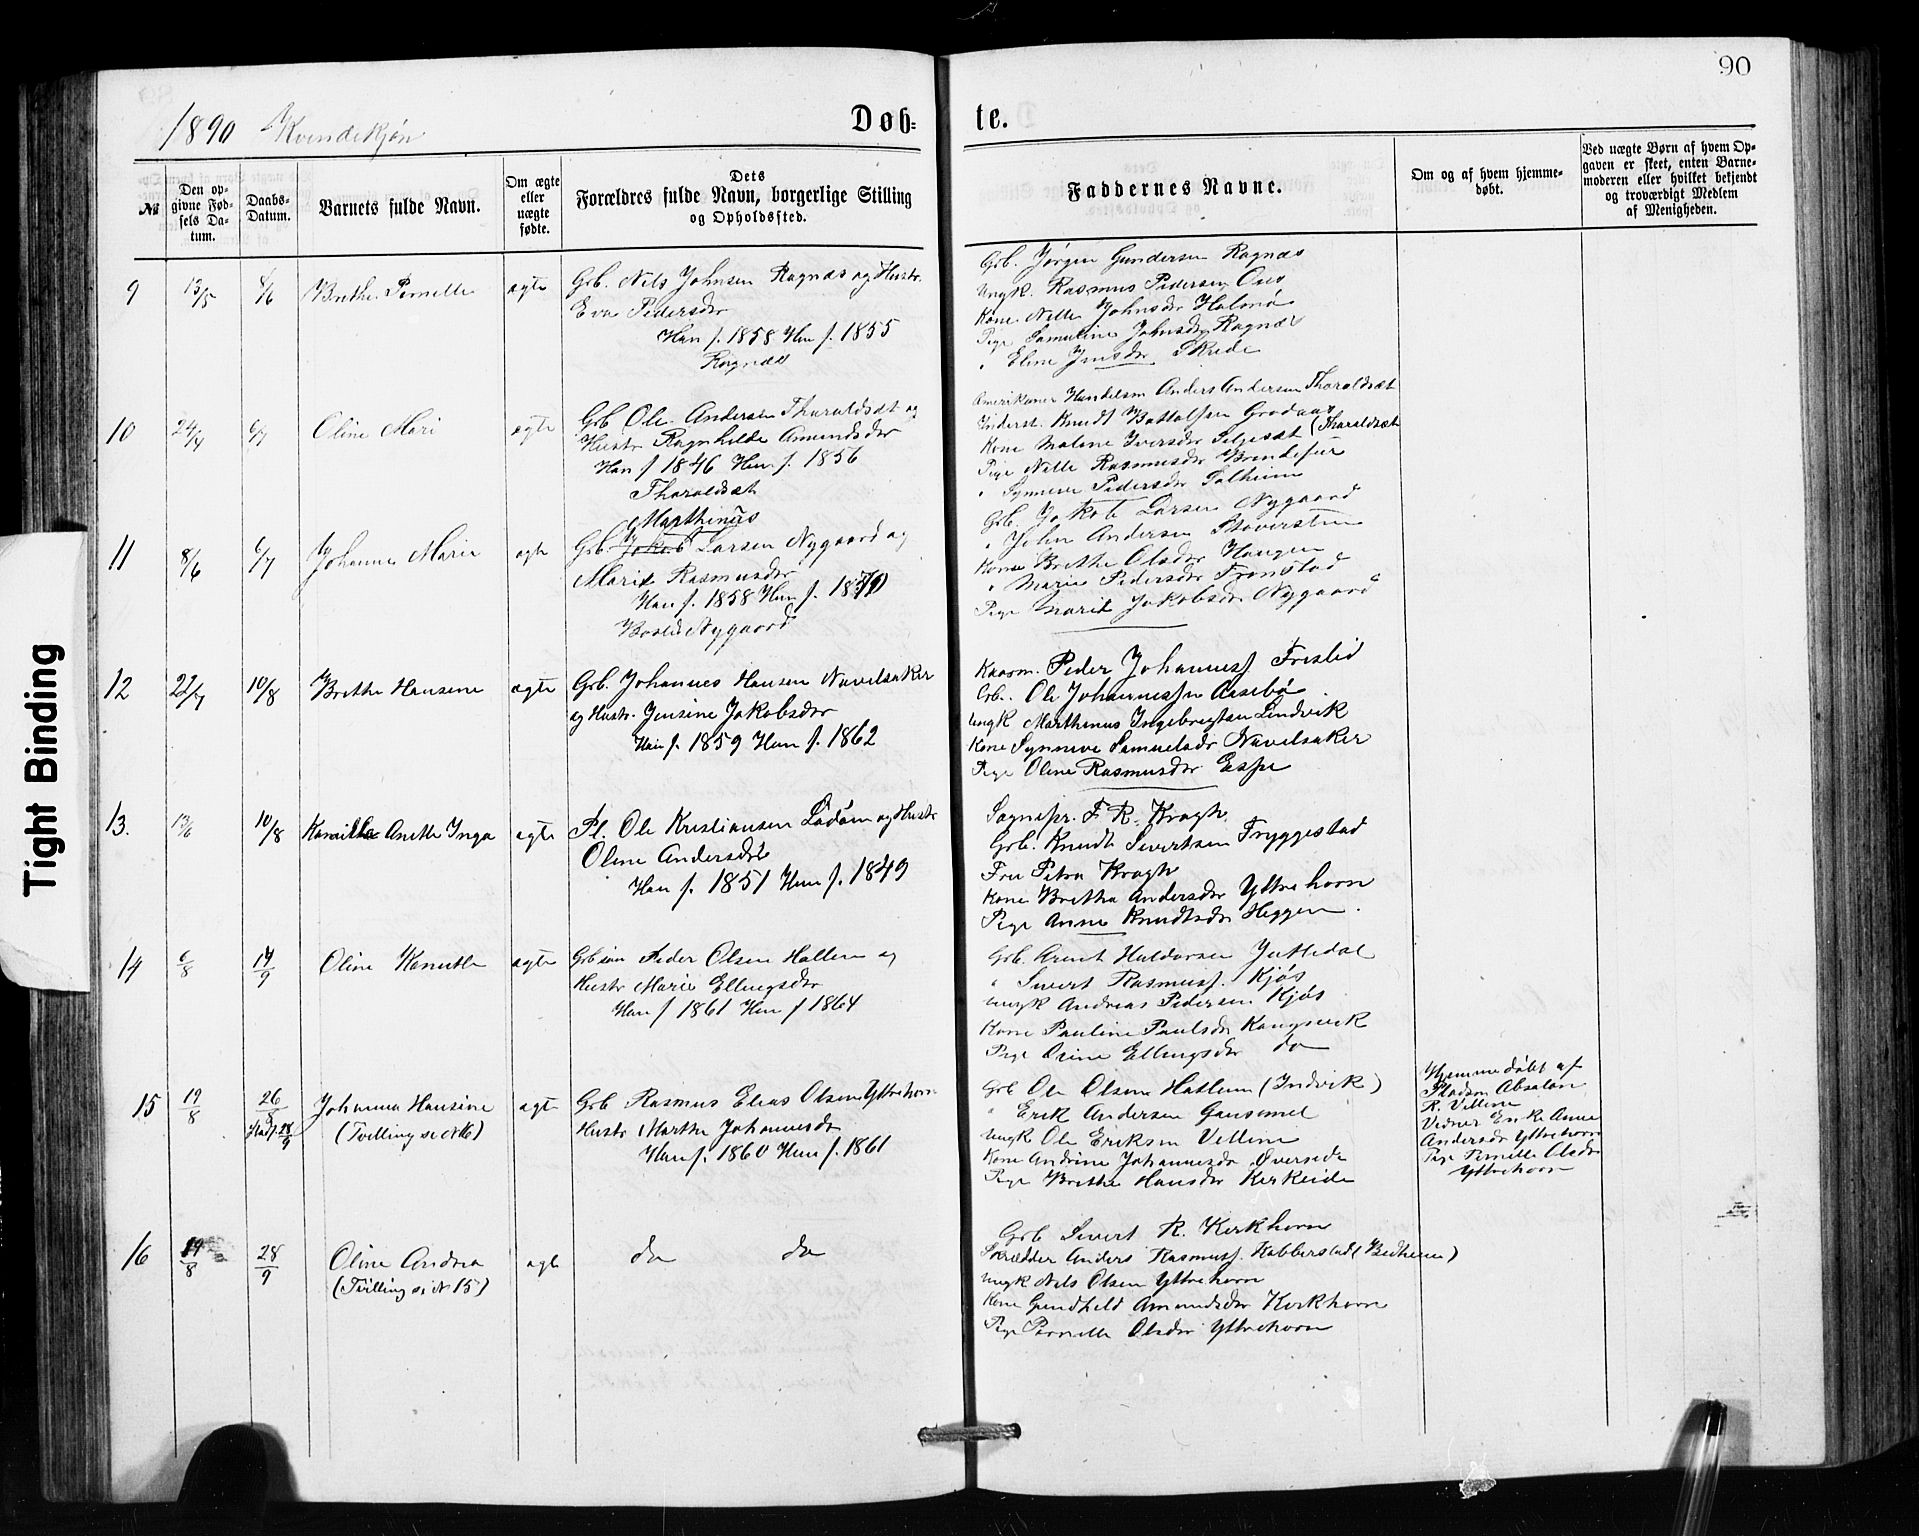 90
1890 Kvindekjøn
Døb-
te.
№
Den op-
givne Fød-
sels Da-
tum.
Daabs-
Datum.
Barnets fulde Navn.
Om ægte
eller
uægte
fødte.
Dets
Forældres fulde Navn, borgerlige Stilling
og Opholdssted.
Faddernes Navne.
Om og af hvem hjemme-
døbt.
Ved uægte Børn af hvem Op-
gaven er skeet, enten Barne-
moderen eller hvilket bekjendt
og troværdigt Medlem
af Menigheden.
9
13/5
8/6
Brithe Pernille
ægte
Grb. Nils Johnsen Ragnæs og Hustr.
Eva Pedersdr
Han f. 1858 Hun f. 1855
Ragnæs
Grb. Jørgen Gundersen Ragnæs
Ungk. Rasmus Pedersen Aas
Kone Nille Johnsdr Holmø
Pige Samuline Johnsdr Ragnæs
" Eline Jensdr Skrede
10
24/4
6/7
Oline Mari
ægte
Grb Ole Andersen Tharaldsæt og
Hustr Ragnhilde Amundsdr
Han f 1846 Hun f. 1856
Tharaldsæt
Amerikaner Handelsm Anders Andersen Tharaldsæt
Inderst. Knudt Bottolfsen Grodaas (Tharaldsæt
Kone Malene Iversdr Seljesæt
Pige Nille Rasmusdr
" Synneve Pedersdr Solheim
11
8/6
6/7
Johanne Marie
ægte
Marthinus
Grb. Jakob Larsen Nygaard og
Marie Rasmusdr
Han f. 1858 Hun f. 1870
Nygaard
Grb. Jakob Larsen Nygaard
" John Andersen
Kone Brithe Olsdr Haugen
" Marie Pedersdr
Pige Marie Jakobsdr Nygaard
12
22/7
10/8
Brithe Hansine
ægte
Grb. Johannes Hansen Navelsaker
og Hustr. Jensine Jakobsdr
Han f. 1859 Hun f. 1862
Kaarm. Peder Johannesf Frislid
Grb. Ole Johannesfn Aasebø
Ungk Marthinus Ingebrigtsen Lindvik
Kone Synneve Samuelsdr Navelsaker
Pige Oline Rasmusdr Espe
13.
13/6
10/8
Kamilla Anette Inga
ægte
Pl. Ole Kristiansen Lødøen og Hustr
Oline Andersdr
Han f. 1851 Hun f. 1849
Sognepr. F. R. Krogh
Grb. Knudt Sivertsen Tryggestad
Fru Petra Krogh
Kone Brithe Andersdr Yttrehorn
Pige Anne Knudtsdr Heggen.
14
6/8
14/9
Oline Knutte
ægte
Grb søn Peder Olsen Hallem og
Hustr Marie Ellingsdr
Han f 1861 Hun f 1864
Grb. Arent Haldorsen
" Sivert Rasmusf. Kjøs
Ungk Andreas Pedersen Kjøs
Kone Pauline Paulsdr Kongsvik
Pige Oline Ellingsdr do
15
19/8
26/8
Stadf. 28/9
Johanna Hansine
(Tvilling se №16)
ægte
Grb Rasmus Elias Olsen Yttrehorn
Hustr Marthe Johannesdr
Han f. 1860 Hun f. 1861
Grb Ole Olsen Hatlem (Indvik)
" Erik Andersen Gausemel
Ungk Ole Eriksen Villine
Kone Andrine Johannesdr Øverside
Pige Brithe Hansdr Kirkeide
Hjemmedøbt af
Pladsm Absalon
R. Villine
Vidner Enke Anne
Andersdr Yttrehorn
Pige Pernille Olsdr
Yttrehorn
16
19/8
28/9
Oline Andrea
(Tvilling se № 15)
ægte
do do
Grb Sivert R. Kirkhorn
Skrædder Anders Rasmusf. Kobberstad (Bedheim)
Ungk Nils Olsen Yttrehorn
Kone Gundhild Amundsdr Kirkhorn
Pige Pernille Olsdr Yttrehorn
Tight Binding